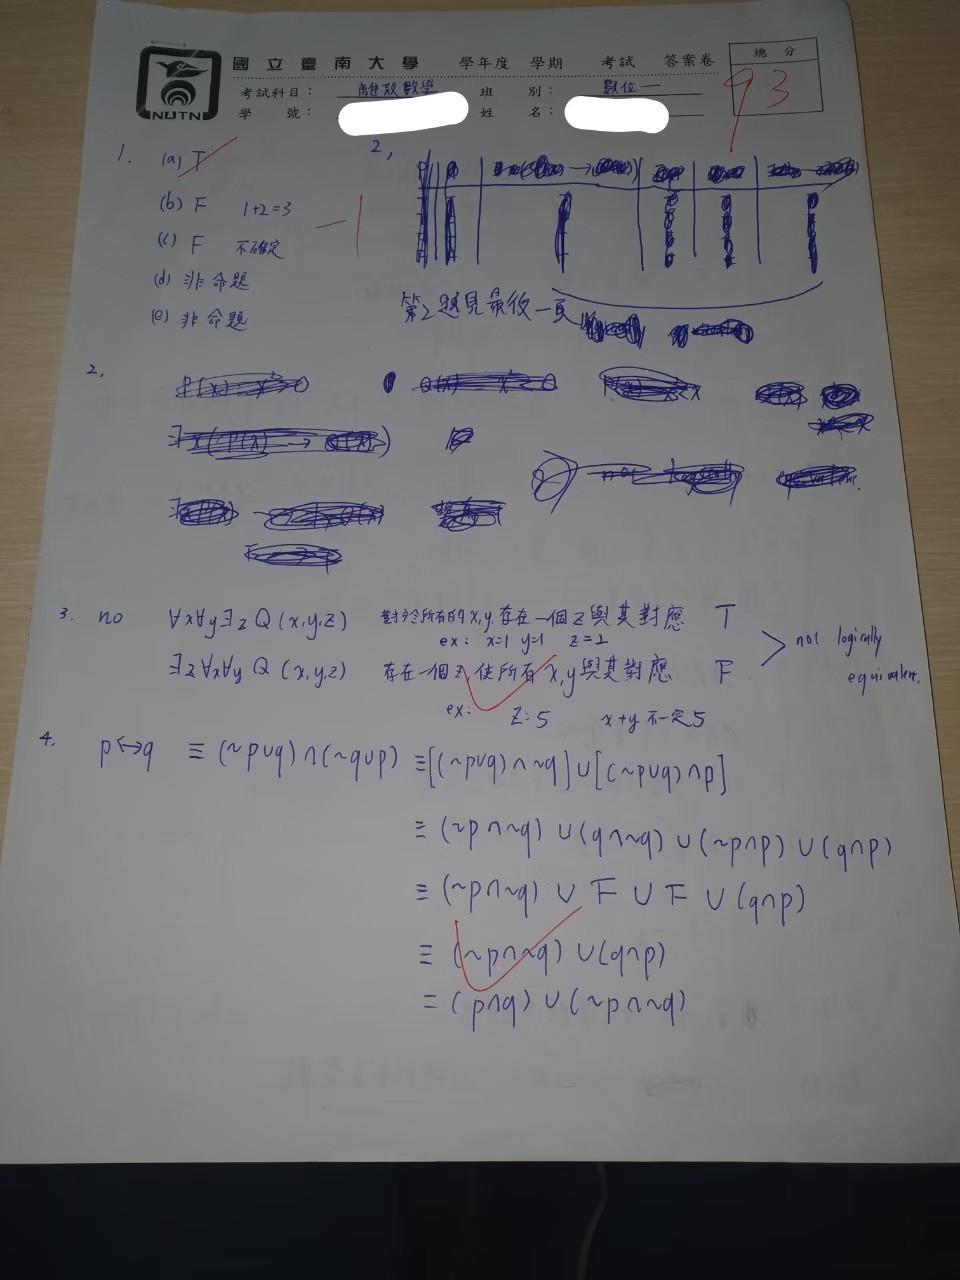 國立臺南大學 學年度 學期 考試 答案卷
總分
93
考試科目: 離散數學 班別: 數位一
學號: 姓名:
NUTN
1. (a) T
(b) F 1+2=3
(c) F 不確定
(d) 非命題
(e) 非命題
-1
2,
第2題見最後一頁
2,
3. no ∀x∀y∃z Q(x,y,z) 對於所有的x,y,存在一個z與其對應 T
ex: x=1 y=1 z=2
∃z∀x∀y Q(x,y,z) 存在一個z,使所有x,y與其對應 F
ex: z=5 x+y不一定5
not logically
equivalent.
4. p↔q ≡ (~p∪q)∩(~q∪p) ≡[(~p∪q)∩~q]∪[(~p∪q)∩p]
≡ (~p∩~q)∪(q∩~q)∪(~p∩p)∪(q∩p)
≡ (~p∩~q)∪F∪F∪(q∩p)
≡ (~p∩~q)∪(q∩p)
= (p∩q)∪(~p∩~q)